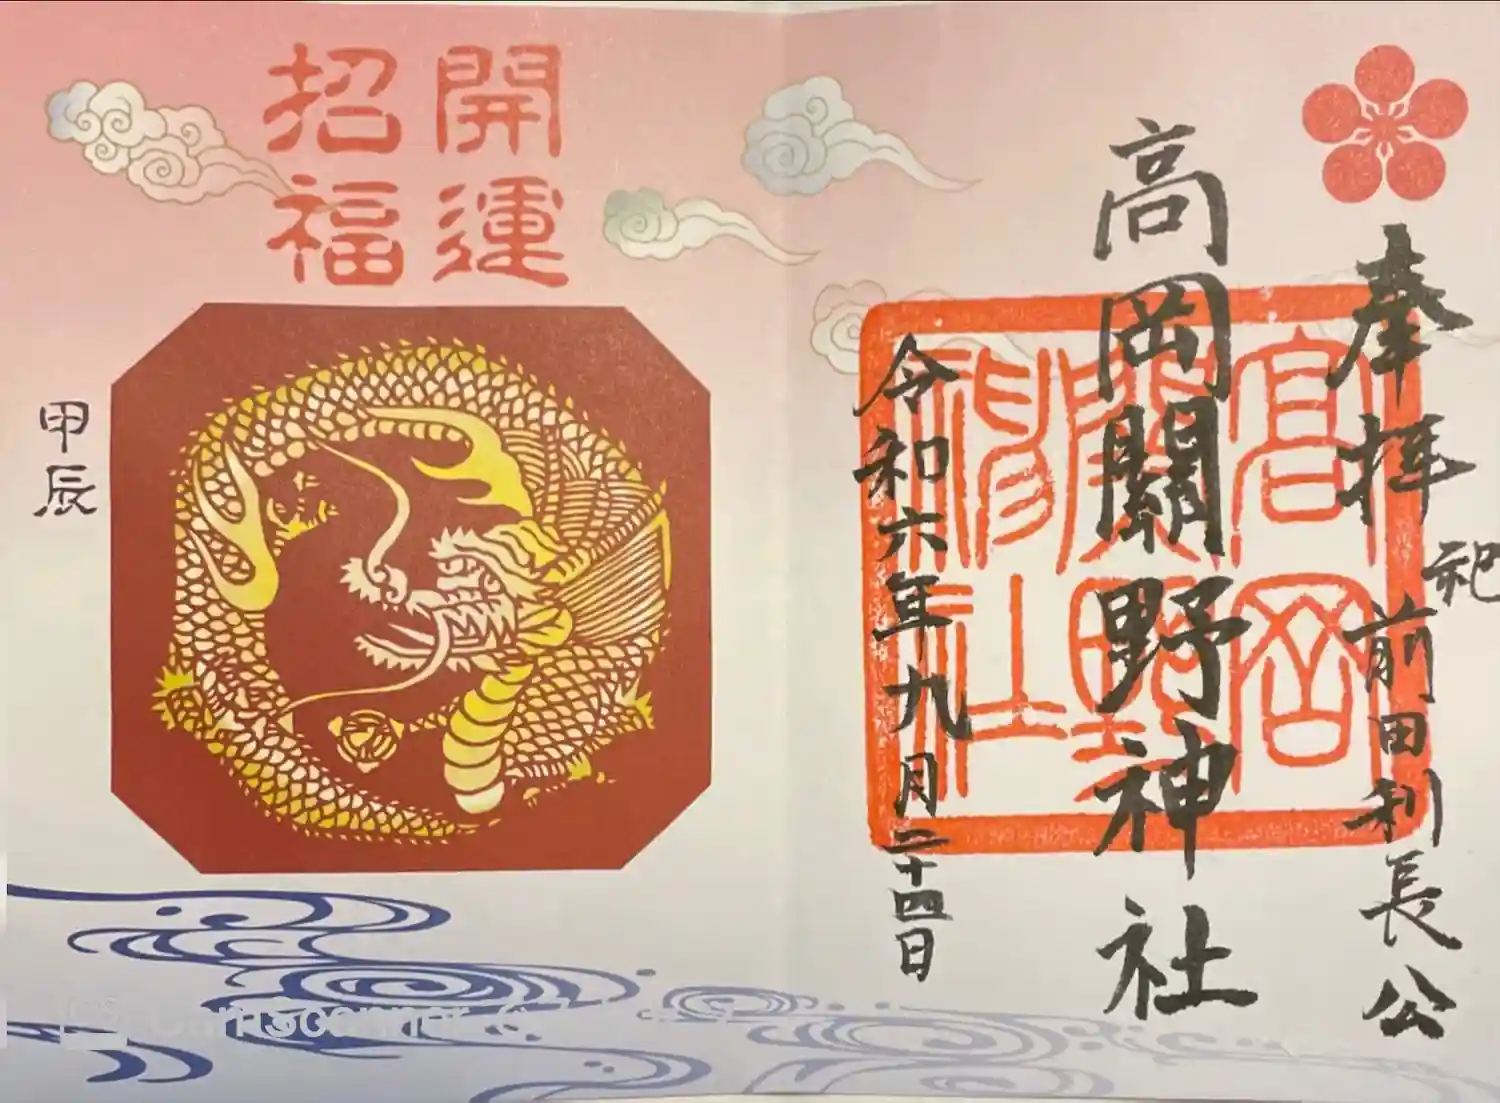 奉拝
祀 前田利長公
高岡關野神社
高岡
關野
神社
令和六年九月二十四日
開運
招福
甲辰
CamScanner